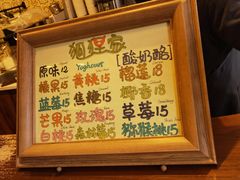 猫狸家
Yoghourt [酸奶酪]
原味12 黄桃15 榴莲18
椰果15 焦糖15 椰香18
蓝莓15 草莓15
芒果15 玫瑰15 猕猴桃15
白桃15